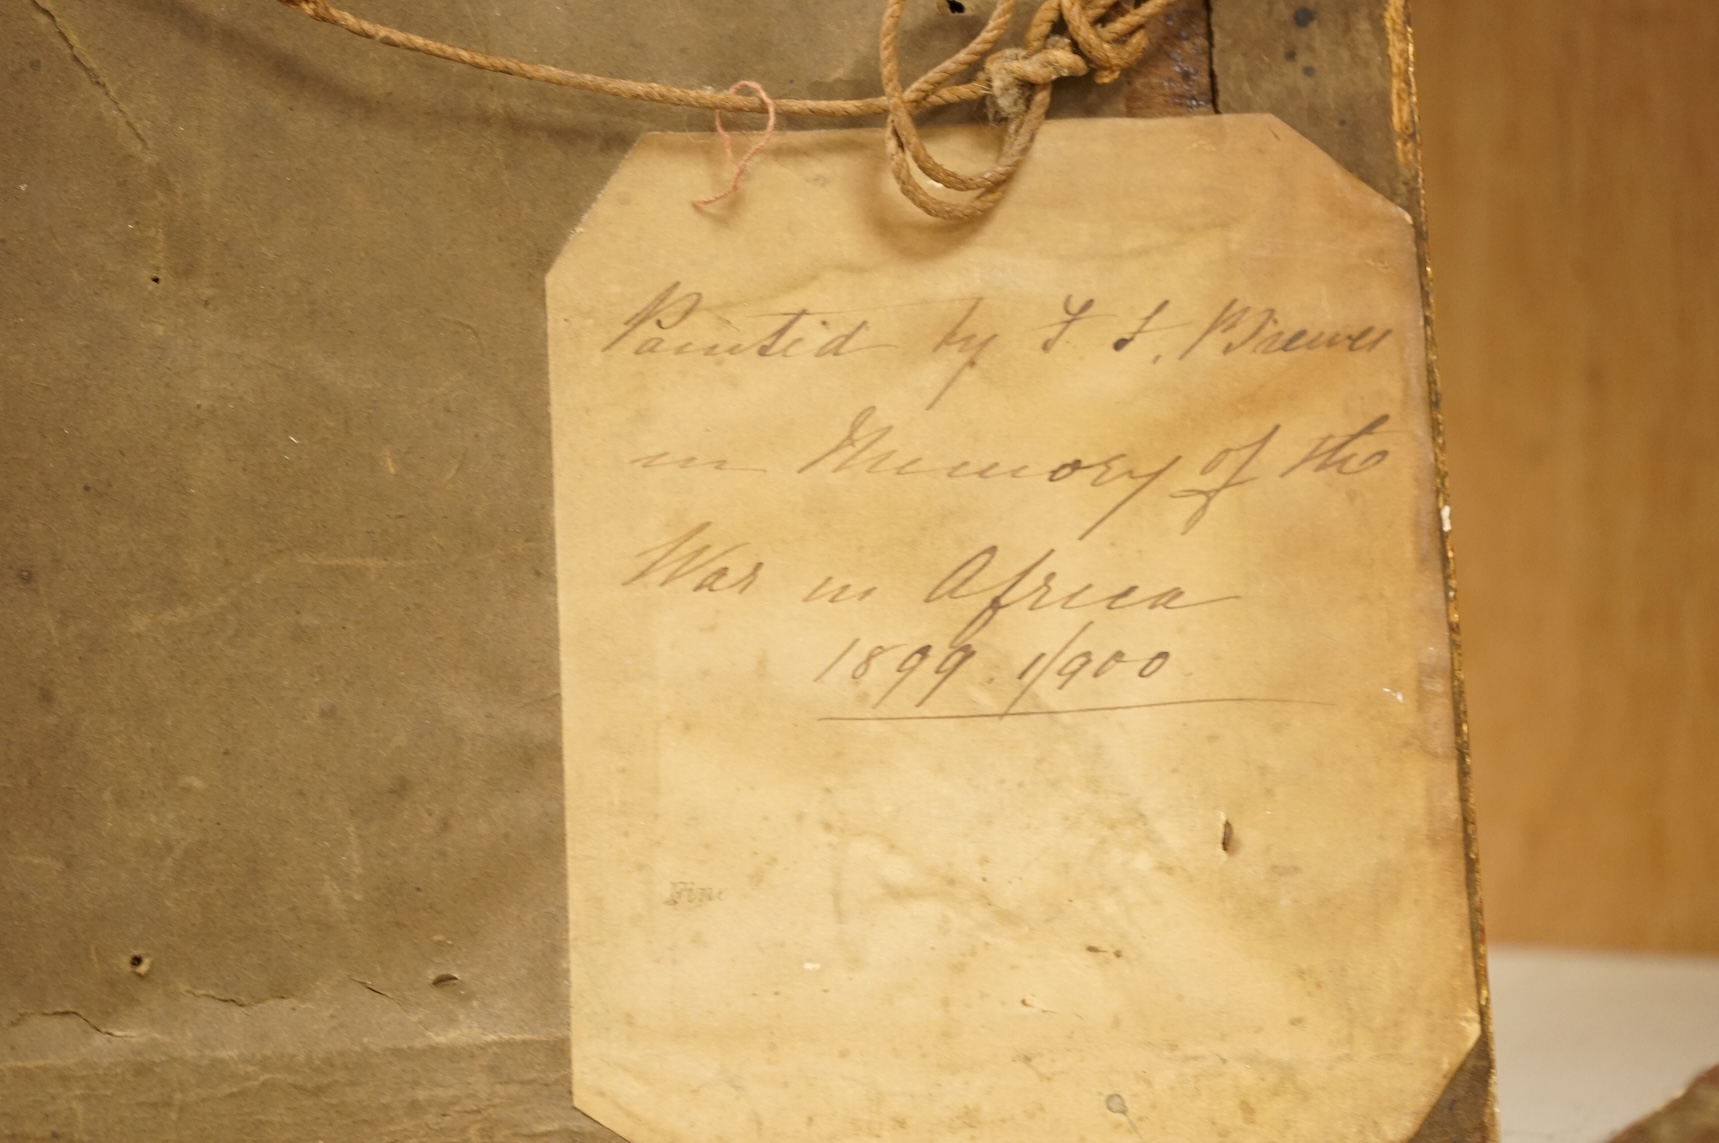 Painted by F F. Brewer
in Memory of the
War in Africa
1899. 1900